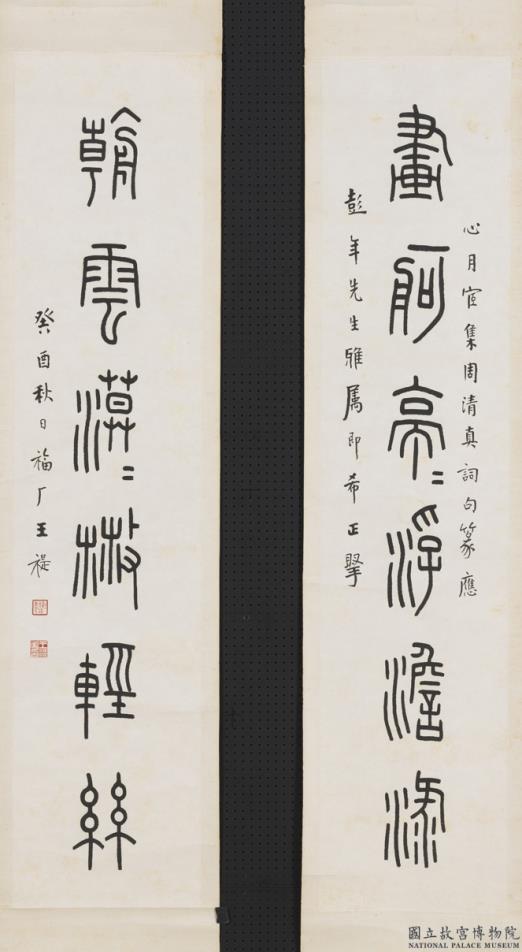 心月宧集周清真詞句篆應
畫舸亭〻浮澹淥
彭年先生雅属即希正掔
朝雲漠〻散輕絲
癸酉秋日福厂王禔
國立故宮博物院
NATIONAL PALACE MUSEUM